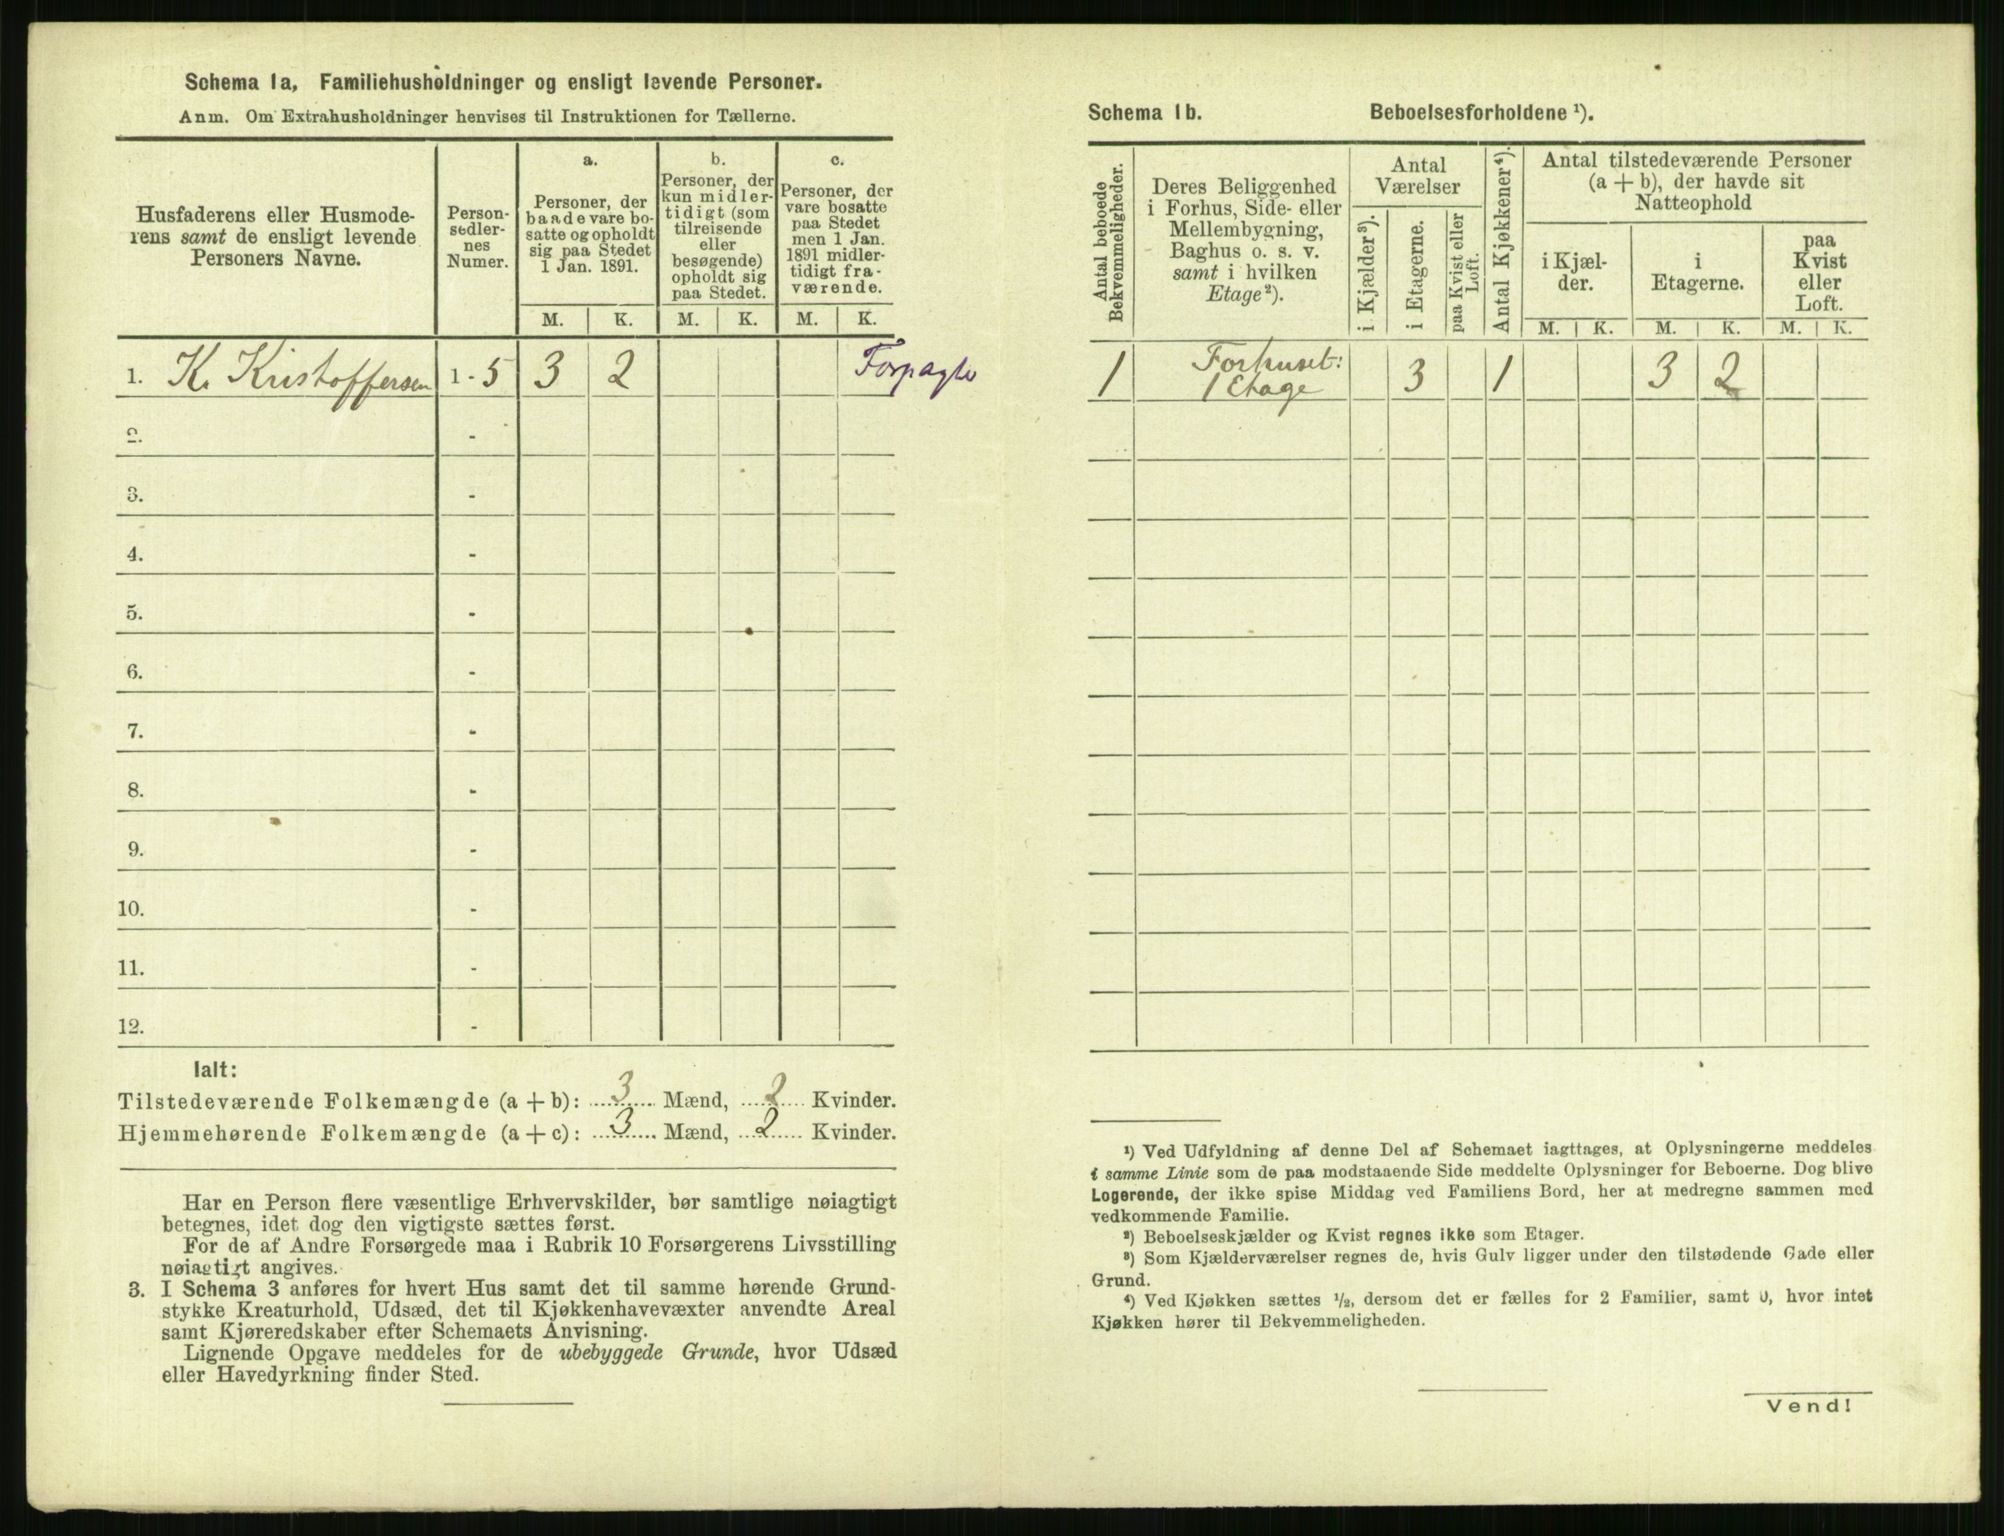 Schema 1a, Familiehusholdninger og ensligt levende Personer.
Anm. Om Extrahusholdninger henvises til Instruktionen for Tællerne.
Husfaderens eller Husmode-
rens samt de ensligt levende
Personers Navne.
Person-
sedler-
nes
Numer.
a.
Personer, der
baade vare bo-
satte og opholdt
sig paa Stedet
1 Jan. 1891.
M. K.
b.
Personer, der
kun midler-
tidigt (som
tilreisende
eller
besøgende)
opholdt sig
paa Stedet.
M. K.
c.
Personer, der
vare bosatte
paa Stedet
men 1 Jan.
1891 midler-
tidigt fra-
værende.
M. K.
1. K. Kristoffersen 1 - 5 3 2 Forpagte
2. -
3. -
4. -
5. -
6. -
7. -
8. -
9. -
10. -
11. -
12. -
Ialt:
Tilstedeværende Folkemængde (a + b): 3 Mænd, 2 Kvinder.
Hjemmehørende Folkemængde (a + c): 3 Mænd, 2 Kvinder.
Har en Person flere væsentlige Erhvervskilder, bør samtlige nøiagtigt
betegnes, idet dog den vigtigste sættes først.
For de af Andre Forsørgede maa i Rubrik 10 Forsørgerens Livsstilling
nøiagtigt angives.
3. I Schema 3 anføres for hvert Hus samt det til samme hørende Grund-
stykke Kreaturhold, Udsæd, det til Kjøkkenhavevæxter anvendte Areal
samt Kjøreredskaber efter Schemaets Anvisning.
Lignende Opgave meddeles for de ubebyggede Grunde, hvor Udsæd
eller Havedyrkning finder Sted.
Schema 1b. Beboelsesforholdene ¹).
Antal beboede
Bekvemmeligheder.
Deres Beliggenhed
i Forhus, Side- eller
Mellembygning,
Baghus o. s. v.
samt i hvilken
Etage²).
Antal
Værelser
i Kjælder³).
i Etagerne.
paa Kvist eller
Loft.
Antal Kjøkkener⁴).
Antal tilstedeværende Personer
(a + b), der havde sit
Natteophold
i Kjæl-
der.
i
Etagerne.
paa
Kvist
eller
Loft.
M. K. M. K. M. K.
1 Forhuset: 3 1 3 2
1 Etage
¹) Ved Udfyldning af denne Del af Schemaet iagttages, at Oplysningerne meddeles
i samme Linie som de paa modstaaende Side meddelte Oplysninger for Beboerne. Dog blive
Logerende, der ikke spise Middag ved Familiens Bord, her at medregne sammen med
vedkommende Familie.
²) Beboelseskjælder og Kvist regnes ikke som Etager.
³) Som Kjælderværelser regnes de, hvis Gulv ligger under den tilstødende Gade eller
Grund.
⁴) Ved Kjøkken sættes ½, dersom det er fælles for 2 Familier, samt 0, hvor intet
Kjøkken hører til Bekvemmeligheden.
Vend!